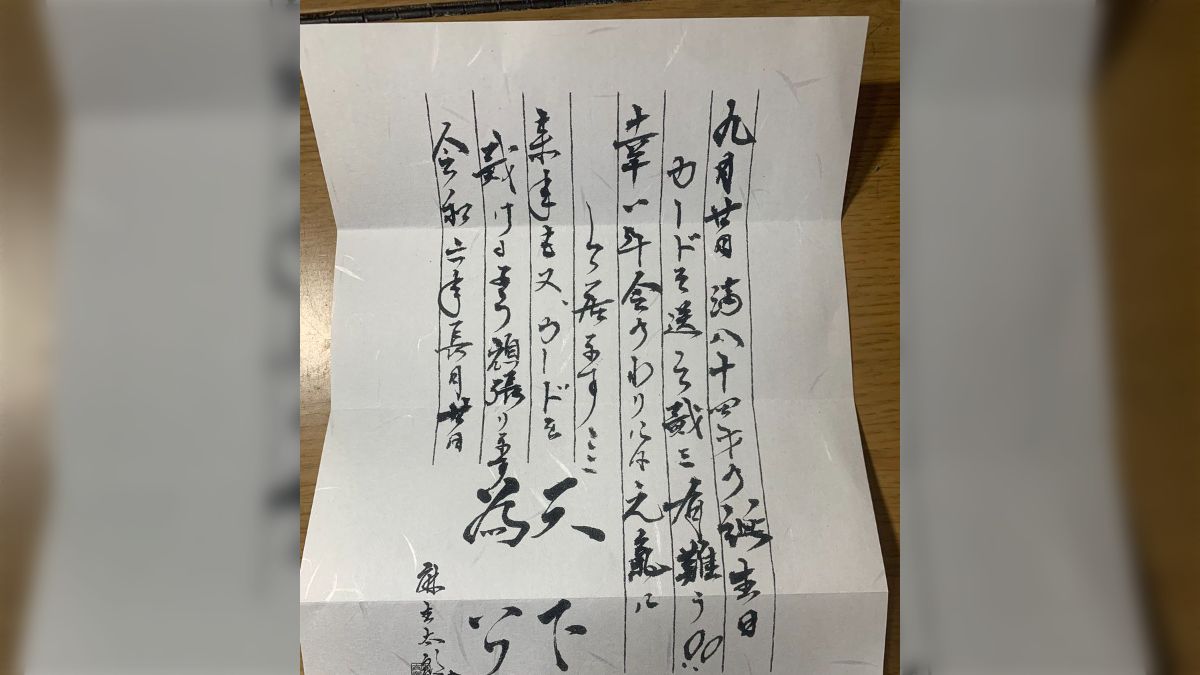 九月廿日 満八十四才の誕生日
カードを送って戴き有難う!!
幸い年令のわりには元氣に
して居ります
来年も又、カードを
戴ける様頑張ります
令和六年長月廿日
天下
為公
麻生太郎